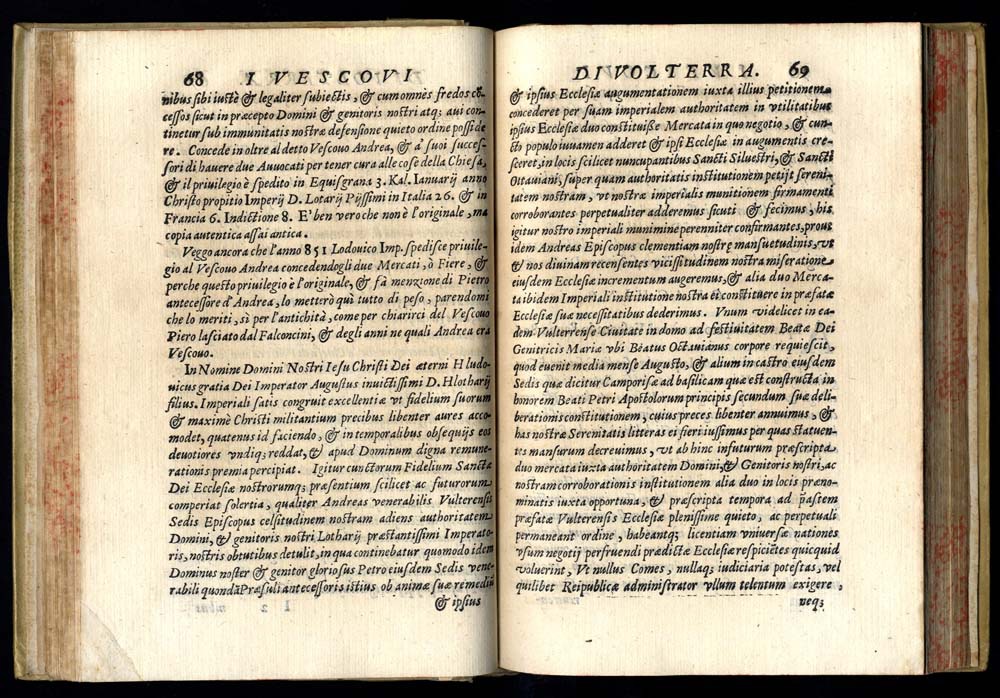 68 I VESCOVI
nibus sibi iustè & legaliter subiectis, & cum omnes fredos cō-
cessos sicut in præcepto Domini & genitoris nostri atq; aui con-
tinetur sub immunitatis nostræ defensione quieto ordine posside
re. Concede in oltre al detto Vescouo Andrea, & a' suoi succes-
sori di hauere due Auuocati per tener cura alle cose della Chiesa,
& il priuilegio è spedito in Equisgrana 3. Kal. Ianuarij anno
Christo propitio Imperij D. Lotarij Pijssimi in Italia 26. & in
Francia 6. Indictione 8. E' ben vero che non è l'originale, ma
copia autentica assai antica.
Veggo ancora che l'anno 851 Lodouico Imp. spedisce priuile-
gio al Vescouo Andrea concedendogli due Mercati, ò Fiere, &
perche questo priuilegio è l'originale, & fà menzione di Pietro
antecessore d'Andrea, lo metterò quì tutto di peso, parendomi
che lo meriti, sì per l'antichità, come per chiarirci del Vescouo
Piero lasciato dal Falconcini, & degli anni ne quali Andrea era
Vescouo.
In Nomine Domini Nostri Iesu Christi Dei æterni Hludo-
uicus gratia Dei Imperator Augustus inuictissimi D. Hlotharij
filius. Imperiali satis congruit excellentiæ vt fidelium suorum
& maximè Christi militantium precibus libenter aures acco-
modet, quatenus id faciendo, & in temporalibus obsequijs eos
deuotiores vndiq; reddat, & apud Dominum digna remune-
rationis premia percipiat. Igitur cunctorum Fidelium Sanctæ
Dei Ecclesiæ nostrorumq; præsentium scilicet ac futurorum
comperiat solertia, qualiter Andreas venerabilis Vulterensis
Sedis Episcopus celsitudinem nostram adiens authoritatem
Domini, & genitoris nostri Lotharij præstantissimi Imperato-
ris, nostris obtutibus detulit, in qua continebatur quomodo idem
Dominus noster & genitor gloriosus Petro eiusdem Sedis vene-
rabili quondā Præsuli antecessoris istius ob animæ suæ remedij
& ipsius
DI VOLTERRA. 69
& ipsius Ecclesiæ augumentationem iuxta illius petitionem
concederet per suam imperialem authoritatem in vtilitatibus
ipsius Ecclesiæ duo constituisse Mercata in quo negotio, & cun-
cto populo iuuamen adderet & ipsi Ecclesiæ in augumentis cre-
sceret, in locis scilicet nuncupantibus Sancti Siluestri, & Sancti
Ottauiani, super quam authoritatis institutionem petijt sereni-
tatem nostram, vt nostræ imperialis munitionem firmamenti
corroborantes perpetualiter adderemus sicuti & fecimus, his
igitur nostro imperiali munimine perenniter confirmantes, prout
idem Andreas Episcopus clementiam nostrę mansuetudinis, vt
& nos diuinam recensentes vicissitudinem nostra miseratione
eiusdem Ecclesiæ incrementum augeremus, & alia duo Merca-
ta ibidem Imperiali institutione nostra ei constituere in præfatæ
Ecclesiæ suæ necessitatibus dederimus. Vnum videlicet in ea-
dem Vulterrense Ciuitate in domo ad festiuitatem Beatæ Dei
Genitricis Mariæ vbi Beatus Octauianus corpore requiescit,
quod euenit media mense Augusto, & alium in castro eiusdem
Sedis quæ dicitur Camporisæ ad basilicam quæ est constructa in
honorem Beati Petri Apostolorum principis secundum suæ deli-
berationis constitutionem, cuius preces libenter annuimus, &
has nostræ Serenitatis litteras ei fieri iussimus per quas statuen-
tes mansurum decreuimus, vt ab hinc infuturum præscripta
duo mercata iuxta authoritatem Domini, & Genitoris nostri, ac
nostram corroborationis institutionem alia duo in locis præno-
minatis iuxta opportuna, & præscripta tempora ad p̄astem
præfatæ Vulterensis Ecclesiæ plenissime quieto, ac perpetuali
permaneant ordine, habeantq; licentiam vniuersæ nationes
vsum negotij perfruendi prædictæ Ecclesiæ respiciētes quicquid
voluerint, Vt nullus Comes, nullaq; iudiciaria potestas, vel
quilibet Reipublicæ administrator vllum telentum exigere,
neq;